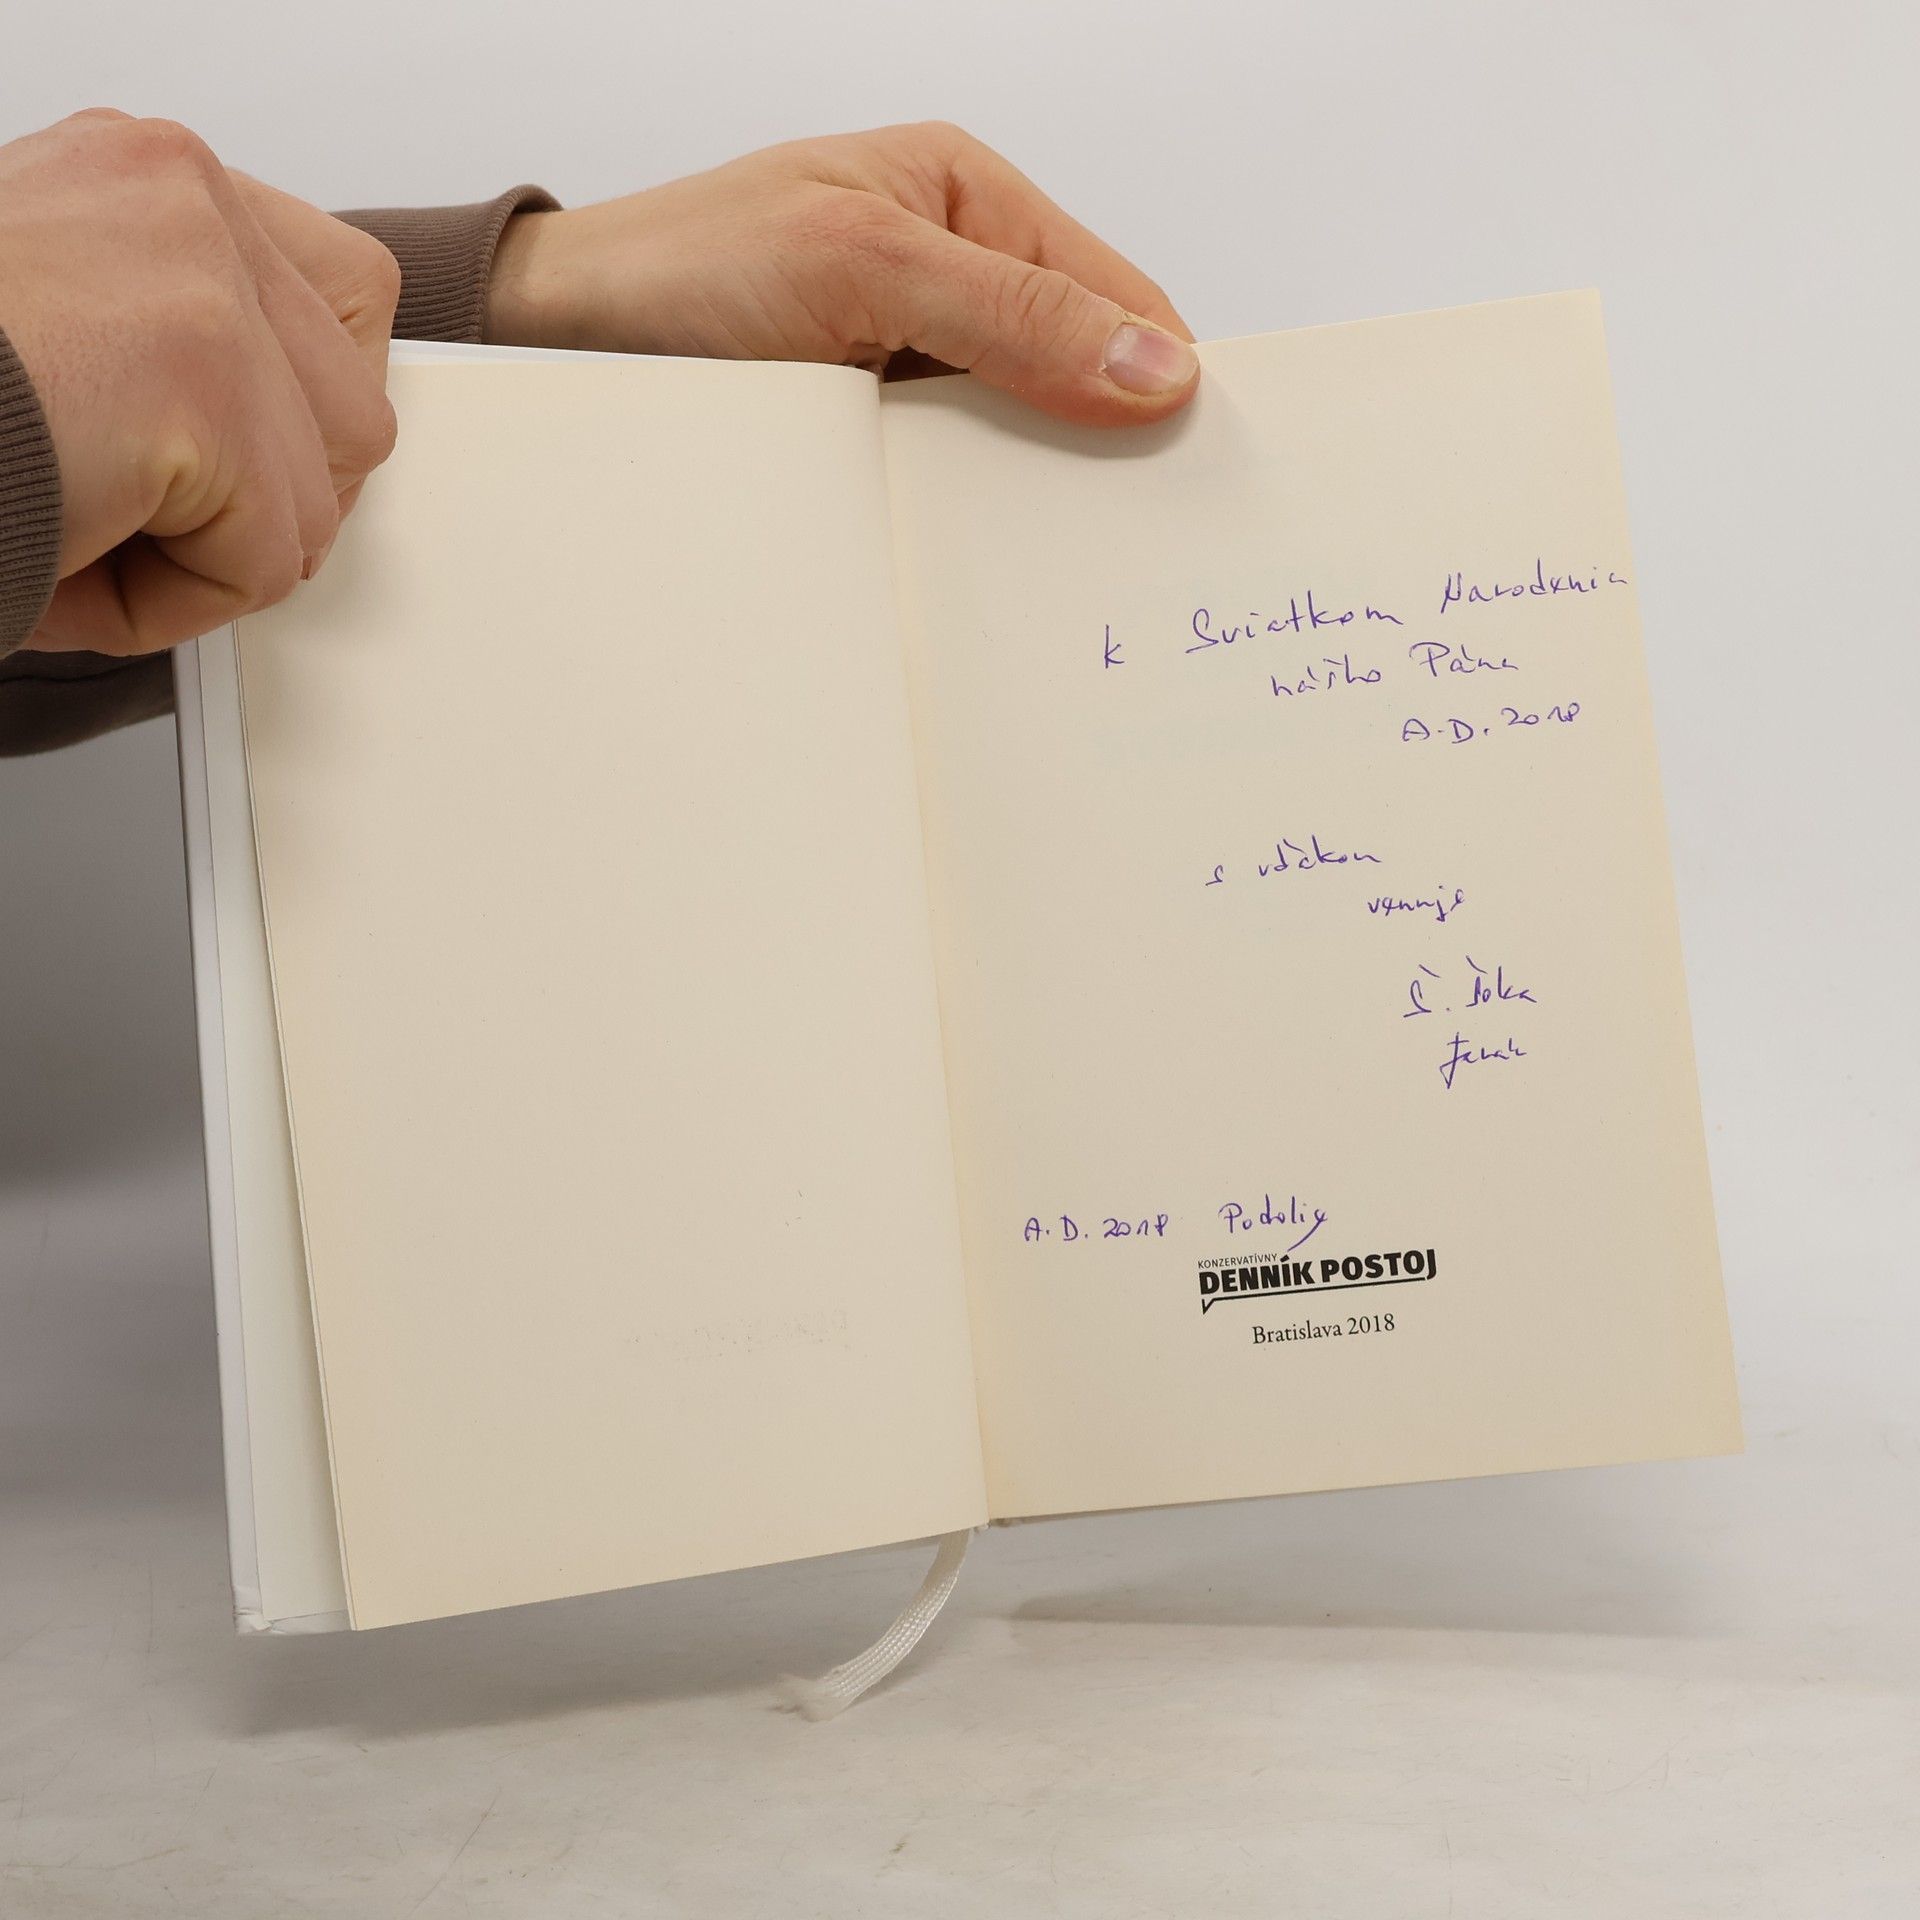 k Sviatkom Narodenia
nášho Pána
A.D. 2018
s vďakou
venuje
Š.
A.D. 2018 Podolie
KONZERVATÍVNY
DENNÍK POSTOJ
Bratislava 2018